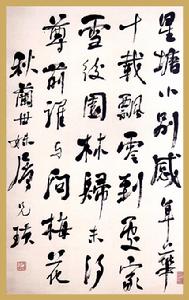 星塘小别感年華
十載飄零到處家
雪後園林歸未得
尊前誰与问梅花
秋蘭世妹屬